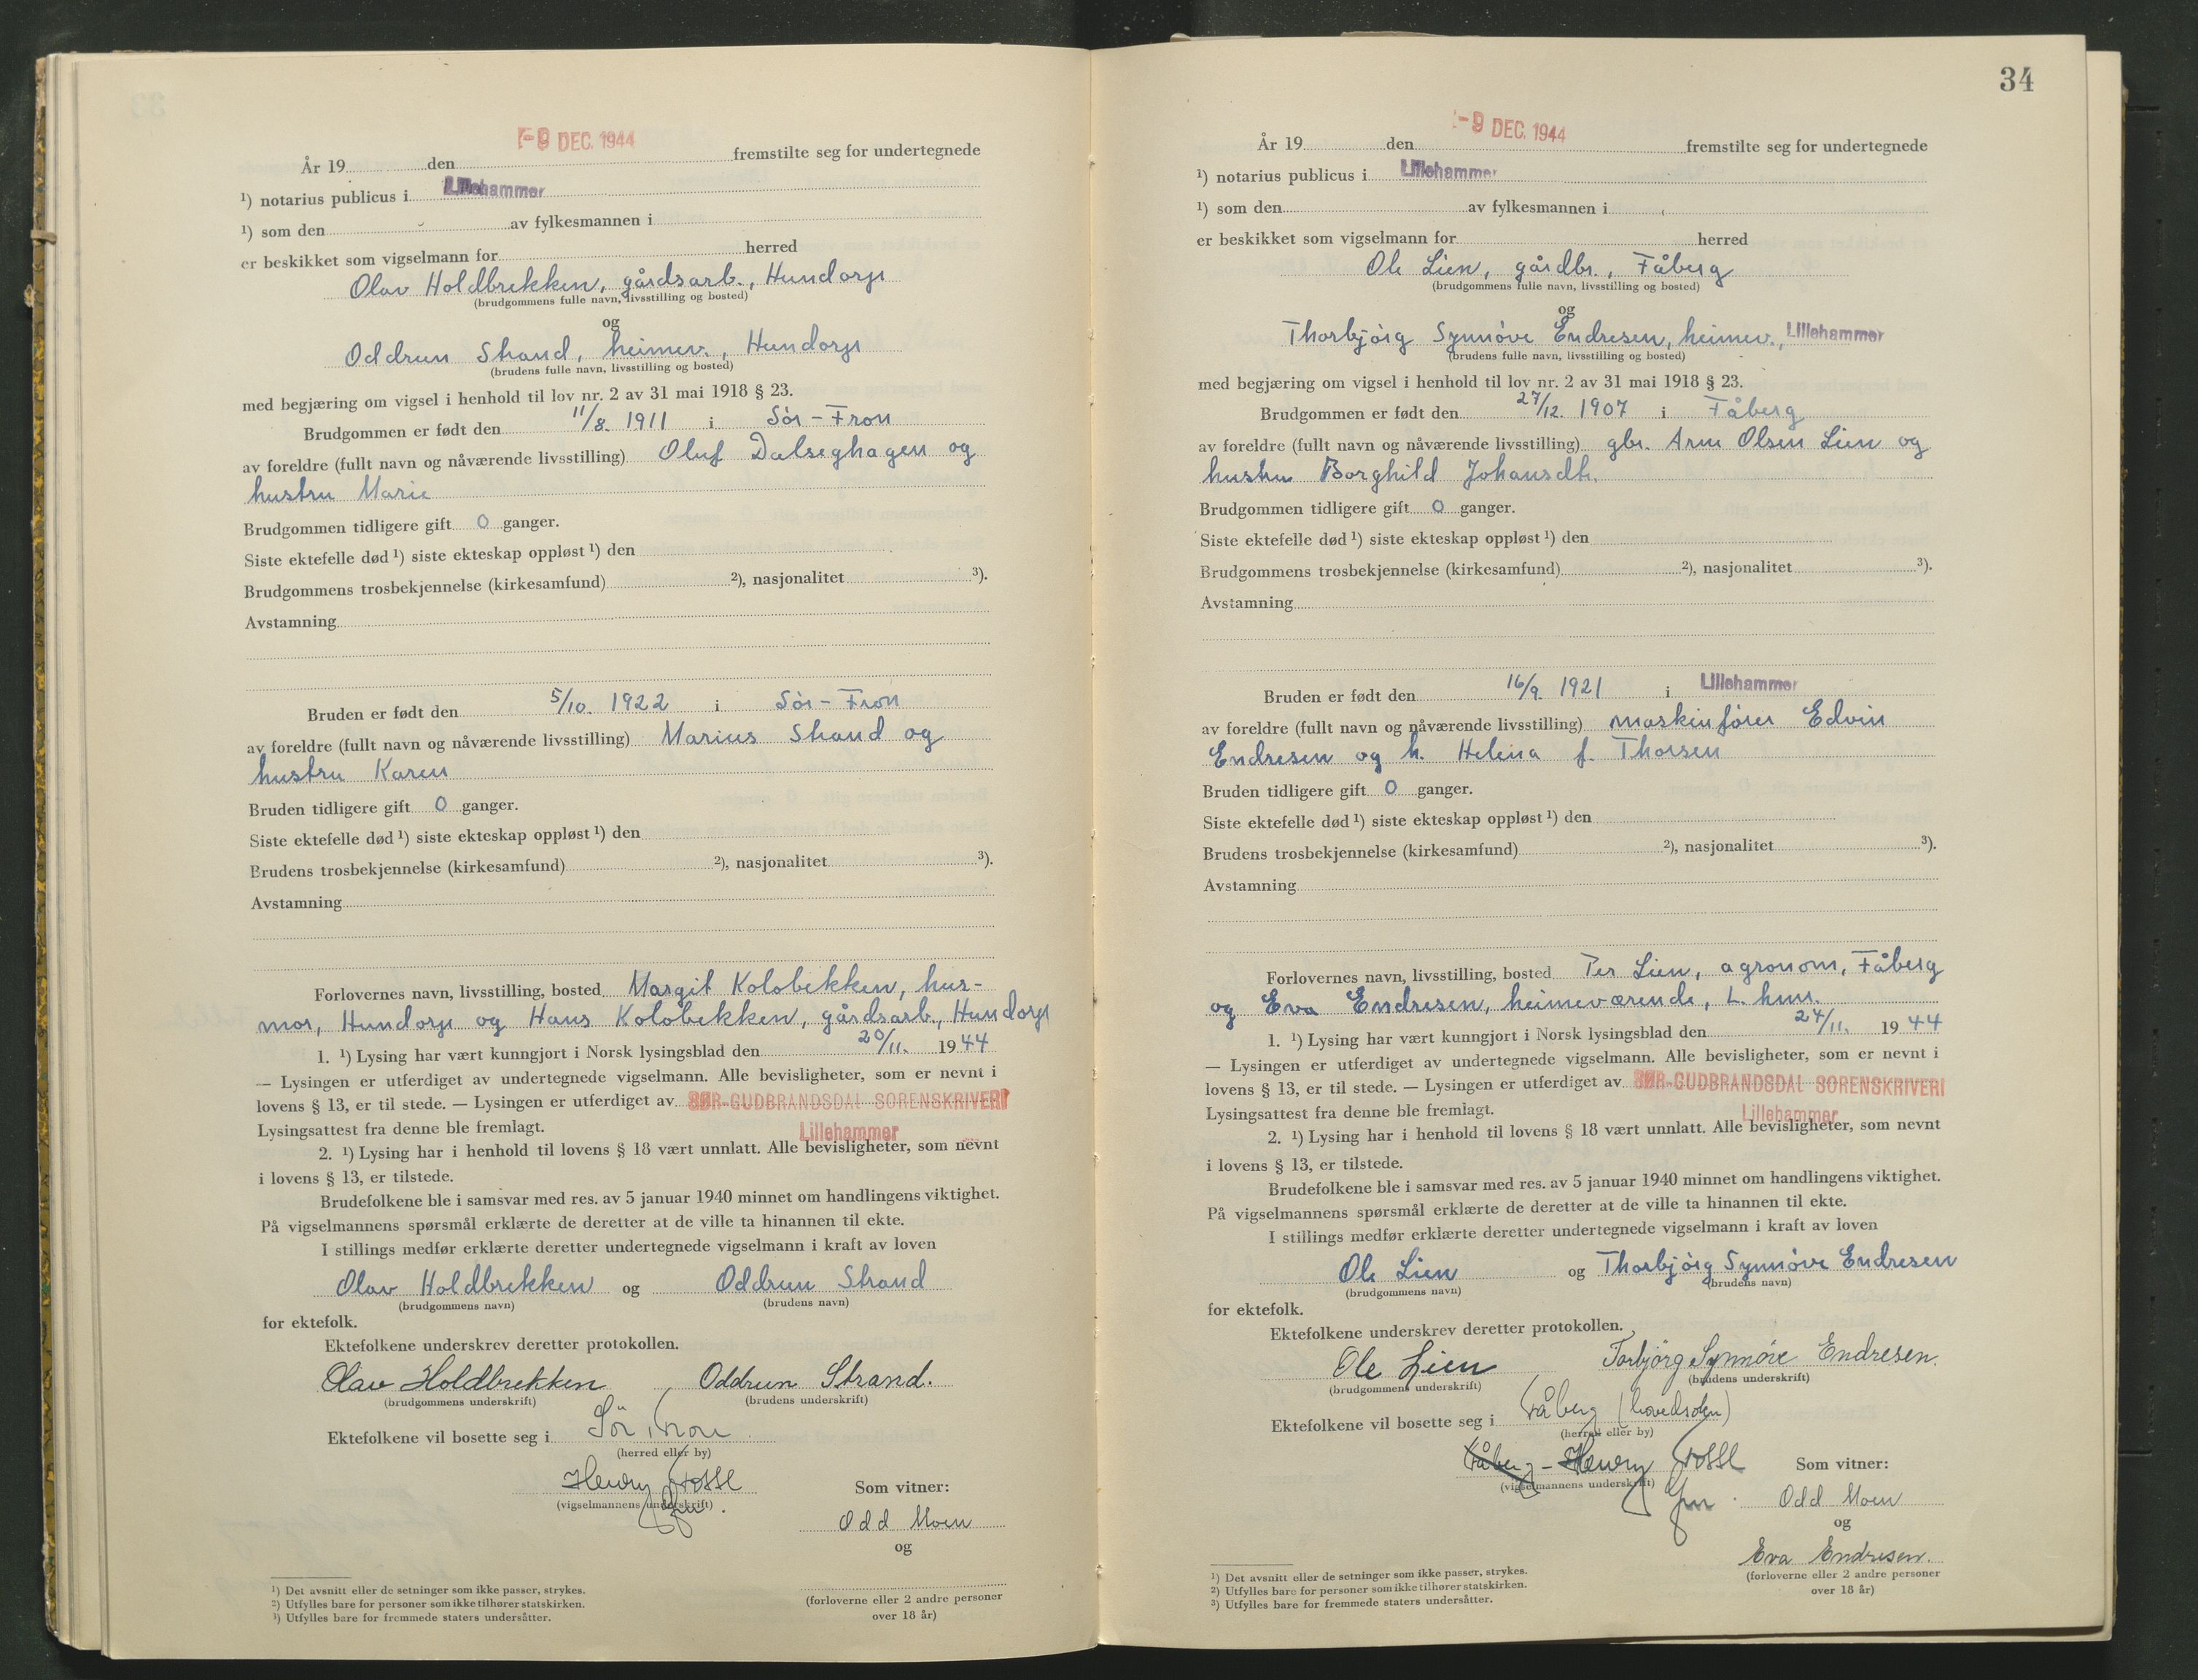 -9 DEC. 1944
År 19 den fremstilte seg for undertegnede
¹) notarius publicus i Lillehammer
¹) som den av fylkesmannen i
er beskikket som vigselmann for herred
Olav Holdbrekken, gårdsarb., Hundorp
(brudgommens fulle navn, livsstilling og bosted)
og
Oddrun Strand, heimev., Hundorp
(brudens fulle navn, livsstilling og bosted)
med begjæring om vigsel i henhold til lov nr. 2 av 31 mai 1918 § 23.
Brudgommen er født den 11/8. 1911 i Sör-Fron
av foreldre (fullt navn og nåværende livsstilling) Oluf Dalseghagen og
hustru Marie
Brudgommen tidligere gift 0 ganger.
Siste ektefelle død ¹) siste ekteskap oppløst ¹) den
Brudgommens trosbekjennelse (kirkesamfund) ²), nasjonalitet ³).
Avstamning
Bruden er født den 5/10. 1922 i Sör-Fron
av foreldre (fullt navn og nåværende livsstilling) Marius Strand og
hustru Karen
Bruden tidligere gift 0 ganger.
Siste ektefelle død ¹) siste ekteskap oppløst ¹) den
Brudens trosbekjennelse (kirkesamfund) ²), nasjonalitet ³).
Avstamning
Forlovernes navn, livsstilling, bosted Margit Kolobekken, hus-
mor, Hundorp og Hans Kolobekken, gårdsarb., Hundorp
1. ¹) Lysing har vært kunngjort i Norsk lysingsblad den 20/11. 1944
— Lysingen er utferdiget av undertegnede vigselmann. Alle bevisligheter, som er nevnt i
lovens § 13, er til stede. — Lysingen er utferdiget av SØR-GUDBRANDSDAL SORENSKRIVERI
Lysingsattest fra denne ble fremlagt. Lillehammer
2. ¹) Lysing har i henhold til lovens § 18 vært unnlatt. Alle bevisligheter, som nevnt
i lovens § 13, er tilstede.
Brudefolkene ble i samsvar med res. av 5 januar 1940 minnet om handlingens viktighet.
På vigselmannens spørsmål erklærte de deretter at de ville ta hinannen til ekte.
I stillings medfør erklærte deretter undertegnede vigselmann i kraft av loven
Olav Holdbrekken og Oddrun Strand
(brudgommens navn) (brudens navn)
for ektefolk.
Ektefolkene underskrev deretter protokollen.
Olav Holdbrekken Oddrun Strand.
(brudgommens underskrift) (brudens underskrift)
Ektefolkene vil bosette seg i Sör Fron
(herred eller by)
Henry
(vigselmannens underskrift)
Som vitner:
Odd Moen
og
(forloverne eller 2 andre personer
over 18 år)
¹) Det avsnitt eller de setninger som ikke passer, strykes.
²) Utfylles bare for personer som ikke tilhører statskirken.
³) Utfylles bare for fremmede staters undersåtter.
34
-9 DEC. 1944
År 19 den fremstilte seg for undertegnede
¹) notarius publicus i Lillehammer
¹) som den av fylkesmannen i
er beskikket som vigselmann for herred
Ole Lien, gårdbr., Fåberg
(brudgommens fulle navn, livsstilling og bosted)
og
Thorbjörg Synnöve Endresen, heimev., Lillehammer
(brudens fulle navn, livsstilling og bosted)
med begjæring om vigsel i henhold til lov nr. 2 av 31 mai 1918 § 23.
Brudgommen er født den 27/12. 1907 i Fåberg
av foreldre (fullt navn og nåværende livsstilling) gbr. Arne Olsen Lien og
hustru Borghild Johansdtr.
Brudgommen tidligere gift 0 ganger.
Siste ektefelle død ¹) siste ekteskap oppløst ¹) den
Brudgommens trosbekjennelse (kirkesamfund) ²), nasjonalitet ³).
Avstamning
Bruden er født den 16/9. 1921 i Lillehammer
av foreldre (fullt navn og nåværende livsstilling) maskinförer Edvin
Endresen og h. Helena f. Thorsen
Bruden tidligere gift 0 ganger.
Siste ektefelle død ¹) siste ekteskap oppløst ¹) den
Brudens trosbekjennelse (kirkesamfund) ²), nasjonalitet ³).
Avstamning
Forlovernes navn, livsstilling, bosted Per Lien, agronom, Fåberg
og Eva Endresen, heimeværende, L. hmr.
1. ¹) Lysing har vært kunngjort i Norsk lysingsblad den 24/11. 1944
— Lysingen er utferdiget av undertegnede vigselmann. Alle bevisligheter, som er nevnt i
lovens § 13, er til stede. — Lysingen er utferdiget av SØR-GUDBRANDSDAL SORENSKRIVERI
Lysingsattest fra denne ble fremlagt. Lillehammer
2. ¹) Lysing har i henhold til lovens § 18 vært unnlatt. Alle bevisligheter, som nevnt
i lovens § 13, er tilstede.
Brudefolkene ble i samsvar med res. av 5 januar 1940 minnet om handlingens viktighet.
På vigselmannens spørsmål erklærte de deretter at de ville ta hinannen til ekte.
I stillings medfør erklærte deretter undertegnede vigselmann i kraft av loven
Ole Lien og Thorbjörg Synnöve Endresen
(brudgommens navn) (brudens navn)
for ektefolk.
Ektefolkene underskrev deretter protokollen.
Ole Lien Torbjörg Synnöve Endresen.
(brudgommens underskrift) (brudens underskrift)
Ektefolkene vil bosette seg i Fåberg (hovedsoken)
(herred eller by)
Fåberg - Henry
(vigselmannens underskrift)
Som vitner:
Odd Moen
og
Eva Endresen.
(forloverne eller 2 andre personer
over 18 år)
¹) Det avsnitt eller de setninger som ikke passer, strykes.
²) Utfylles bare for personer som ikke tilhører statskirken.
³) Utfylles bare for fremmede staters undersåtter.